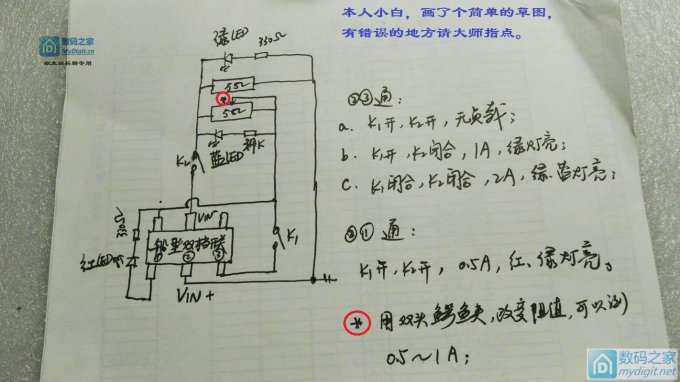 本人小白，画了个简单的草图，
有错误的地方请大师指点。
数码之家
MyDigit.cn
绿LED
330Ω
5Ω
5Ω
蓝LED
K2
VIN-
K1
船型双档
红LED
① ② ③
VIN+
②③通：
a. K1开，K2开，无负载；
b. K1开，K2闭合，1A，绿灯亮；
c. K1闭合，K2闭合，2A，绿蓝灯亮；
②①通：
K1开，K2开，0.5A，红、绿灯亮。
* 用双头鳄鱼夹，改变阻值，可以测
0.5～1A；
数码之家
mydigit.net